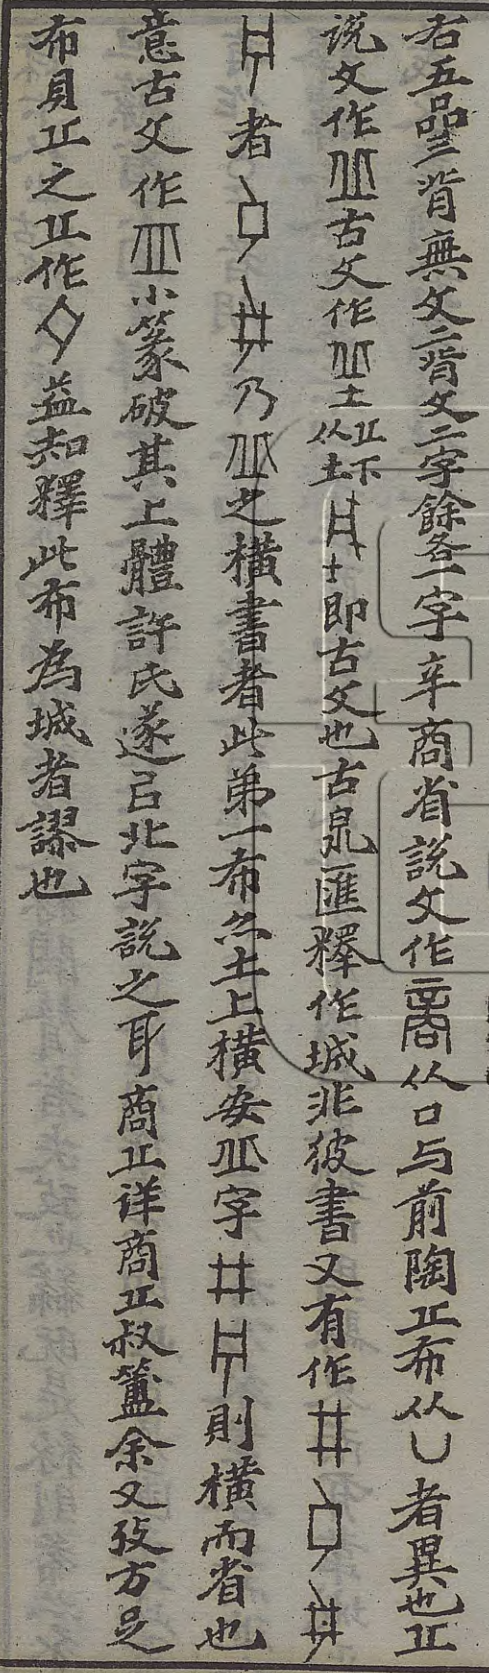 右五品三背無文二背文二字餘各一字𠦪商省說文作𠾃从口与前陶丘布从凵者異也丘
說文作丠古文作𠀌从丘下土即古文也古泉匯釋作城非彼書又有作
者乃丠之橫書者此第一布亦土上橫安丠字則橫而省也
意古文作小篆破其上體許氏遂㠯北字說之耳商丘详商丘叔簠余又攷方足
布貝丘之丘作益知釋此布為城者謬也